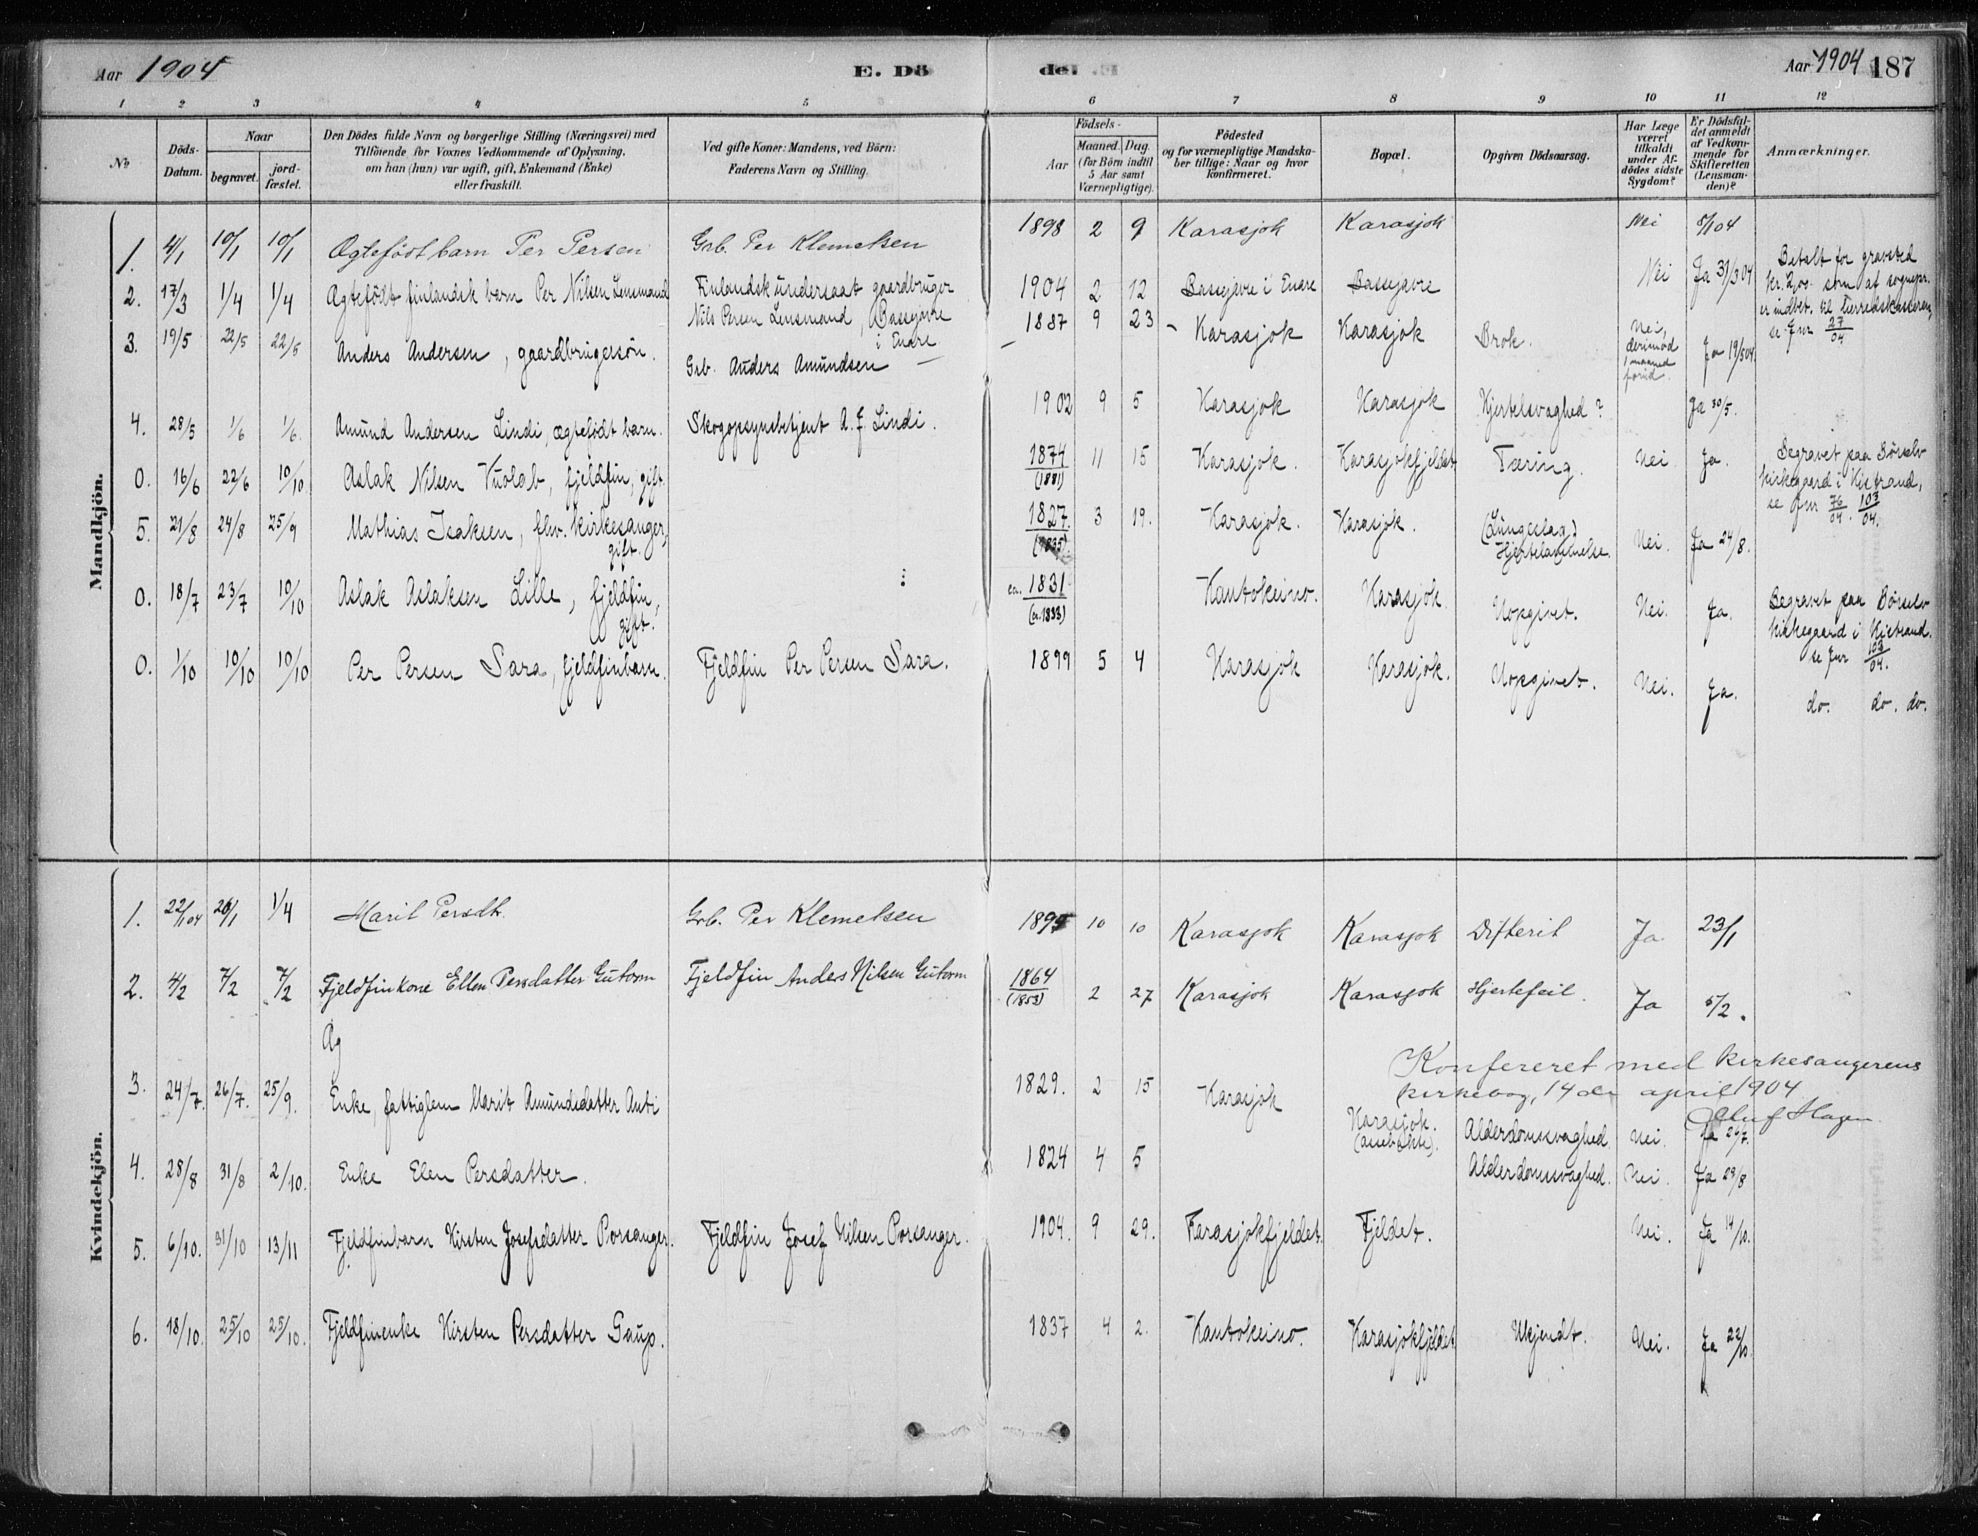 Aar 1904 E. Dö
de. Aar 1904 187
1 2 3 4 5 6 7 8 9 10 11 12
No
Döds-Datum.
Naar
begravet.
jord-fæstet.
Den Dödes fulde Navn og borgerlige Stilling (Næringsvei) med
Tilföiende for Voxnes Vedkommende af Oplysning,
om han (hun) var ugift, gift, Enkemand (Enke)
eller fraskilt.
Ved gifte Koner: Mandens, ved Börn:
Faderens Navn og Stilling.
Födsels-
Aar
Maaned. Dag.
(for Börn indtil
5 Aar samt
Værnepligtige).
Födested
og for værnepligtige Mandska-
ber tillige: Naar og hvor
konfirmeret.
Bopæl.
Opgiven Dödsaarsag.
Har Læge
været
tilkaldt
under Af-
dödes sidste
Sygdom?
Er Dödsfal-
det anmeldt
af Vedkom-
mende for
Skifteretten
(Lensman-
den)?
Anmærkninger.
Mandkjön.
1. 4/1 10/1 10/1 Ægtefödt barn Per Persen Grb. Per Klemetsen 1898 2 9 Karasjok Karasjok Nei 8/1 04
2. 17/3 1/4 1/4 Ægtefödt finlandsk barn Per Nilsen Lensmand Finlandsk undersaat gaardbruger
Nils Persen Lensmand, Bassejavre
i Enare 1904 2 12 Bassejavre i Enare Bassejavre Nei Ja 31/3 04 Betalt for gravsted
kr. 2,00 som af sognepr.
er indbet. til herredskasseren,
se Jnr 27/04
3. 19/5 22/5 22/5 Anders Andersen, gaardbrugersön. Grb. Anders Amundsen 1887 9 23 Karasjok Karasjok Brok. Nei,
derimod
1 maaned
forud. Ja 19/5 04
4. 28/5 1/6 1/6. Amund Andersen Lindi, ægtefödt barn. Skogopsynsbetjent A. J. Lindi. 1902 9 5 Karasjok Karasjok Hjertesvaghed? Ja 30/5.
0. 16/6 22/6 10/10 Aslak Nilsen Vuolab, fjeldfin, gift. 1874
(1881) 11 15 Karasjok. Karasjokfjeldet Tæring. Nei. Ja. Begravet paa Börselv
kirkegaard i Kistrand,
se Jnr 76/04. 103/04.
5. 21/8 24/8 25/9 Mathias Isaksen, fhv. kirkesanger,
gift. 1827
(1835) 3 19. Karasjok. Karasjok. (Lungeslag,)
Hjertelammelse. Nei. Ja 24/8.
0. 18/7 23/7 10/10 Aslak Aslaksen Lille, fjeldfin,
gift. ca. 1831
(ca. 1833) Kautokeino. Karasjok. Uopgivet. Nei. Ja. Begravet paa Börselv
kirkegaard i Kistrand.
se Jnr 103/04.
0. 1/10 10/10 10/10 Per Persen Sara, fjeldfinbarn. Fjeldfin Per Persen Sara. 1899 5 4 Karasjok Karasjok. Uopgivet. Nei. Ja. do. do. do.
Kvindekjön.
1. 22/1 04 26/1 1/4 Marit Persdt. Grb. Per Klemetsen 1895 10 10 Karasjok Karasjok Difterit Ja 23/1
2. 4/2 7/2 7/2 Fjeldfinkone Ellen Persdatter Gutorm Fjeldfin Anders Nilsen Gutorm 1864
(1853) 2 27 Karasjok Karasjok Hjertefeil. Ja 5/2.
Æg
Konfereret med kirkesangerens
kirkebog, 14de april 1904
Oluf Hagen
3. 24/7. 26/7. 25/9. Enke, fattiglem Marit Amundsdatter Anti 1829. 2 15 Karasjok Karasjok.
(assebakte). Alderdomssvaghed Nei. Ja 26/7.
4. 28/8 31/8 2/10. Enke Elen Persdatter. 1824 4 5 Alderdomssvaghed. Nei. Ja 29/8
5. 6/10. 31/10 13/11 Fjeldfinbarn Kirsten Josefsdatter Porsanger. Fjeldfin Josef Nilsen Porsanger. 1904. 9 29. Karasjokfjeldet. Fjeldet. Nei. Ja 14/10.
6. 18/10. 25/10 25/10. Fjeldfinenke Kirsten Persdatter Gaup. 1837 4 2. Kautokeino. Karasjokfjeldet Ukjendt. Nei. Ja 22/10